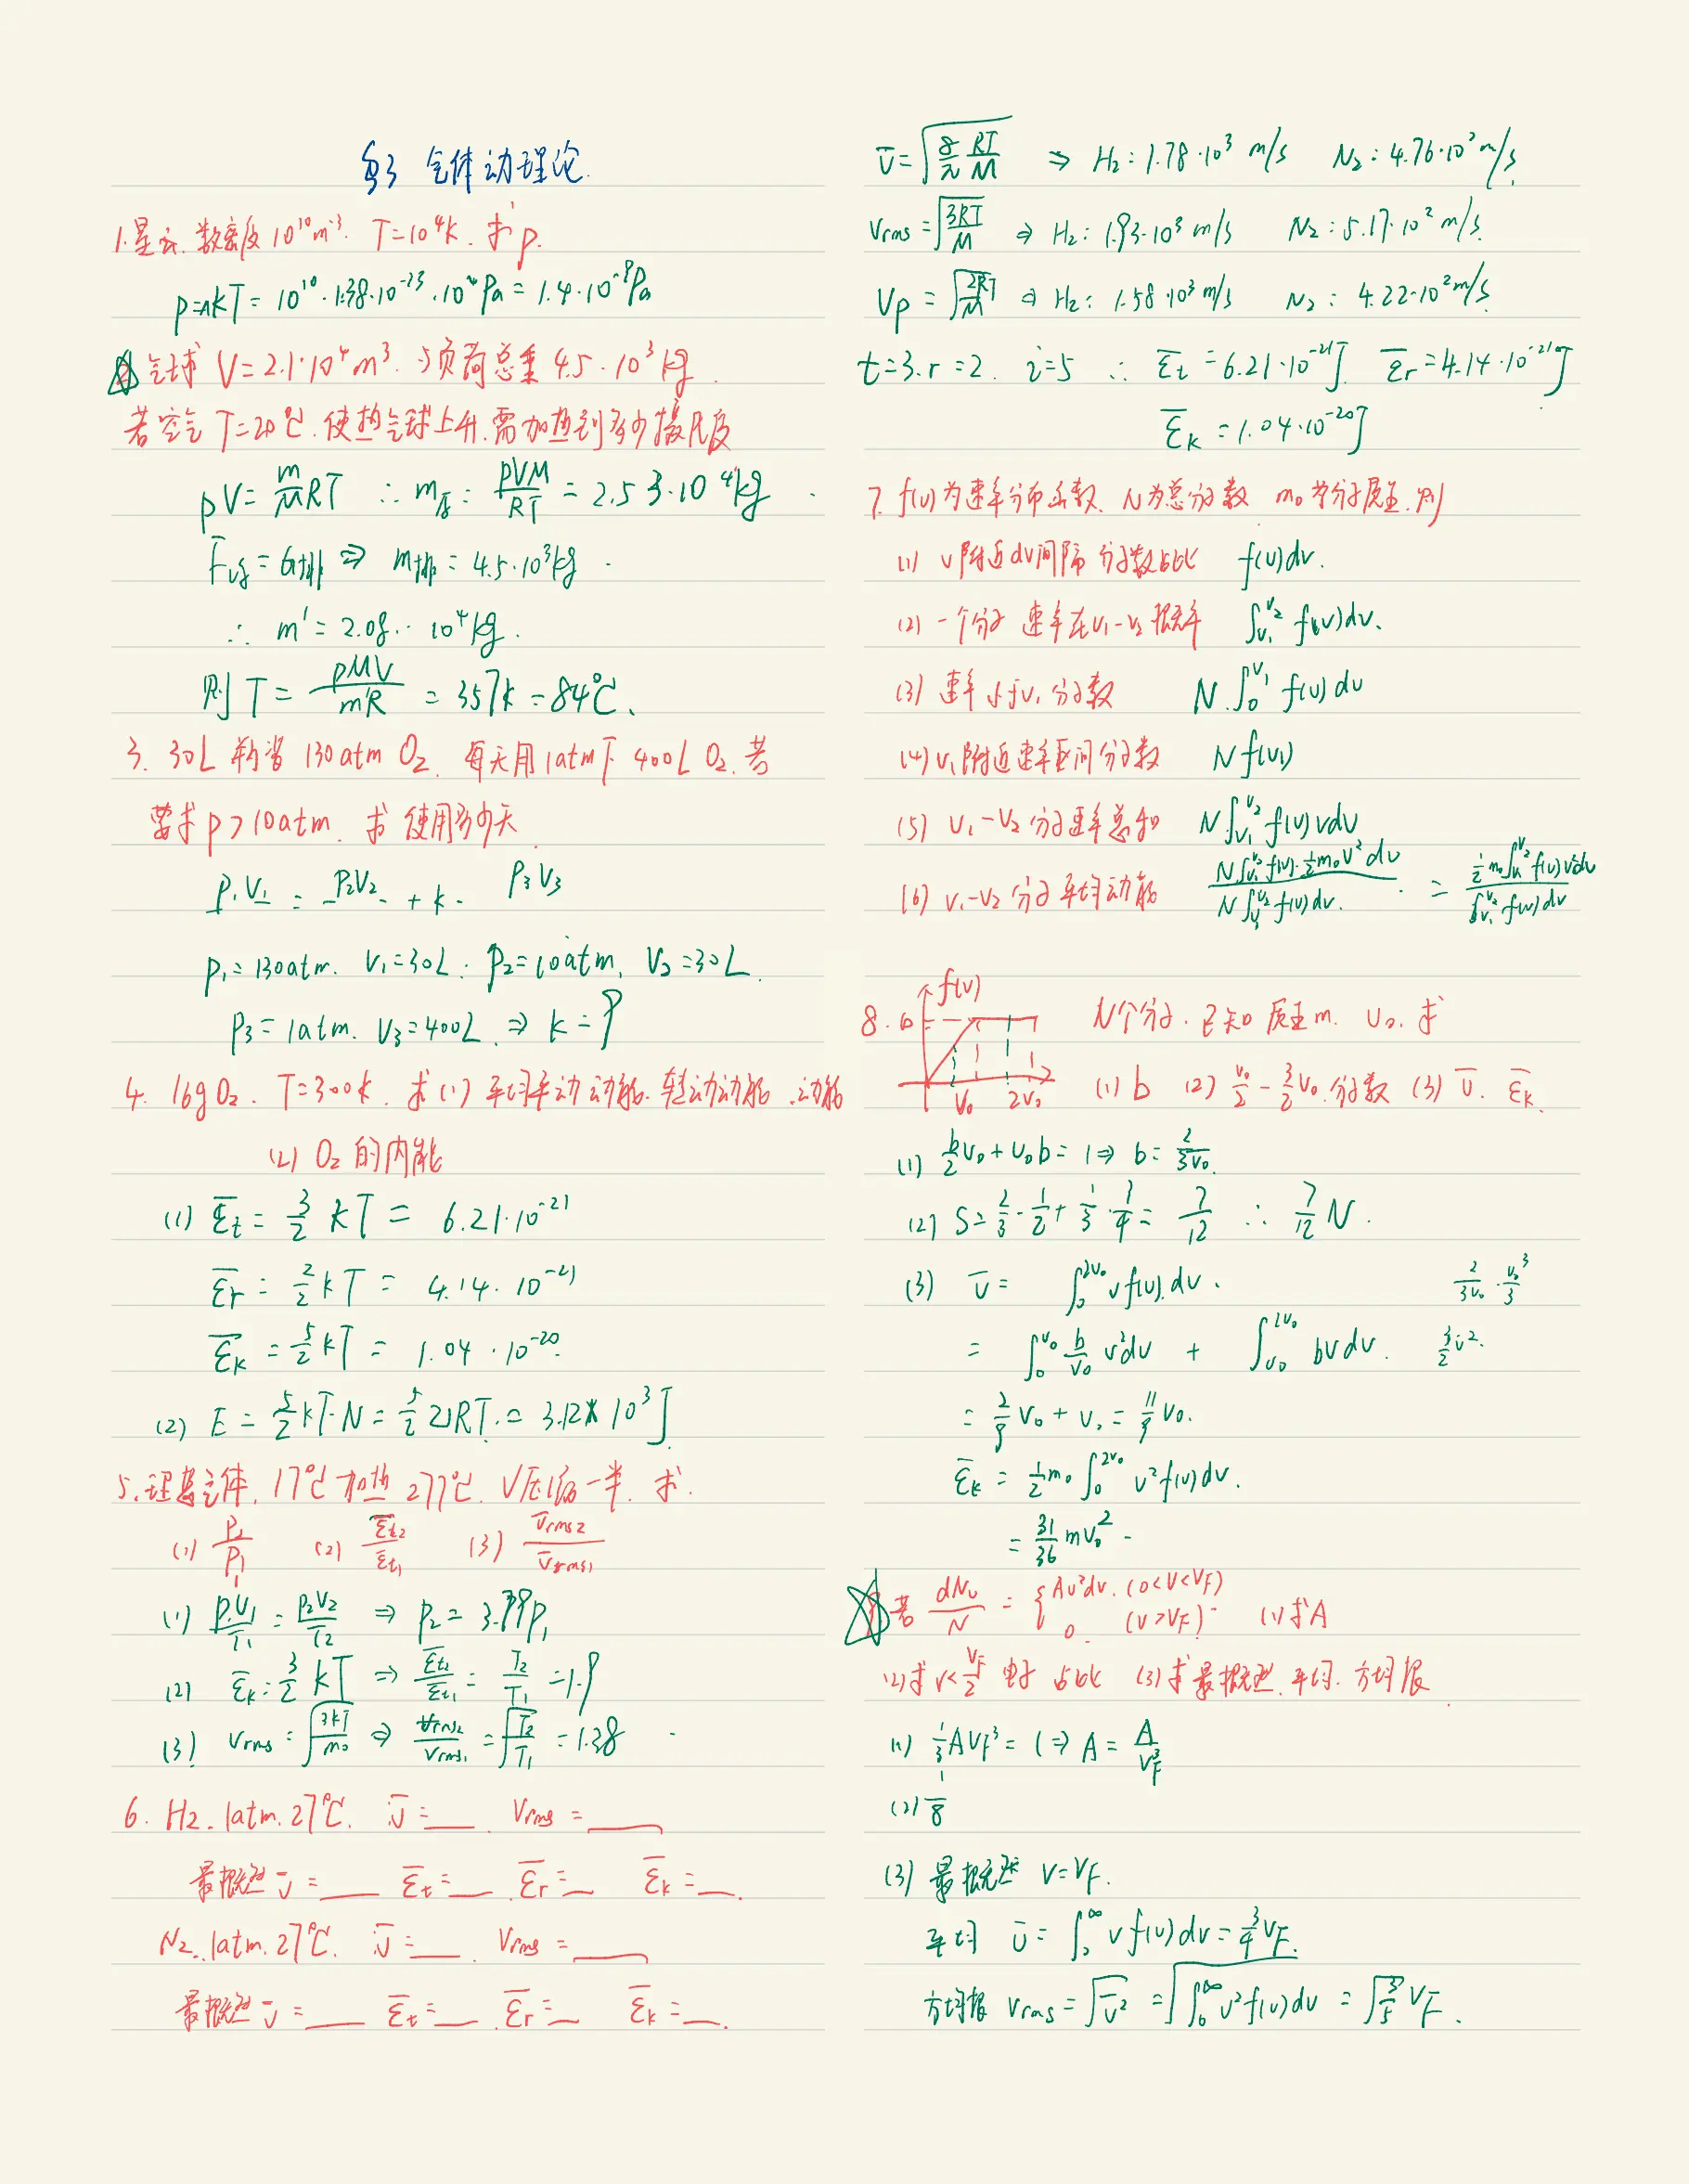 §3 气体动理论.
1.星云. 数密度10^10 m^-3. T=10^4k. 求p.
p=nkT= 10^10 · 1.38·10^-23 · 10^4 Pa = 1.4·10^-9 Pa
气球 V=2.1·10^4 m^3. 与负荷总重 4.5·10^3 kg.
若空气 T=20℃. 使热气球上升. 需加热到多少摄氏度
pV= m/M RT ∴ m = pVM/RT = 2.53·10^4 kg
F浮 = G排 ⇒ m排 = 4.5·10^3 kg.
∴ m' = 2.08·10^4 kg.
则 T = pMV/m'R = 357k = 84℃.
3. 30L 130atm O2. 每天用1atm下 400L O2. 若
要求 p>10atm. 求 使用多少天
p1V1 = p2V2 + k· p3V3
p1=130atm. V1=30L. p2=10atm. V2=30L.
p3=1atm. V3=400L. ⇒ k=9
4. 16g O2. T=300k. 求(1) 平均平动动能. 转动动能. 动能
(2) O2的内能
(1) ε̄t = 3/2 kT = 6.21·10^-21
ε̄r = 2/2 kT = 4.14·10^-21
ε̄k = 5/2 kT = 1.04·10^-20
(2) E = 5/2 kT·N = 5/2 νRT = 3.12×10^3 J
5.理想气体. 17℃加热277℃. V压缩一半. 求.
(1) p2/p1 (2) ε̄t2/ε̄t1 (3) v̄rms2/v̄rms1
(1) p1V1/T1 = p2V2/T2 ⇒ p2 = 3.79p1
(2) ε̄k = 3/2 kT ⇒ ε̄t2/ε̄t1 = T2/T1 = 1.9
(3) vrms = √(3kT/m0) ⇒ vrms2/vrms1 = √(T2/T1) = 1.38
6. H2. 1atm. 27℃. v̄=___. vrms=____
最概然 v̄=___ ε̄t=__. ε̄r=__ ε̄k=__.
N2. 1atm. 27℃. v̄=___. vrms=____
最概然 v̄=___ ε̄t=__. ε̄r=__ ε̄k=__.
v̄=√(8/π RT/M) ⇒ H2: 1.78·10^3 m/s N2: 4.76·10^2 m/s.
vrms=√(3RT/M) ⇒ H2: 1.93·10^3 m/s N2: 5.17·10^2 m/s.
vp=√(2RT/M) ⇒ H2: 1.58·10^3 m/s N2: 4.22·10^2 m/s.
t=3. r=2. i=5 ∴ ε̄t=6.21·10^-21 J. ε̄r=4.14·10^-21 J
ε̄k=1.04·10^-20 J
7. f(v)为速率分布函数. N为总分子数 m0为分子质量. 则
(1) v附近dv间隔 分子数占比 f(v)dv.
(2) 一个分子 速率在v1-v2概率 ∫_{v1}^{v2} f(v)dv.
(3) 速率小于v1分子数 N·∫_0^{v1} f(v)dv
(4) v1附近速率区间分子数 Nf(v1)
(5) v1-v2 分子速率总和 N∫_{v1}^{v2} f(v)vdv
(6) v1-v2 分子平均动能 N∫_{v1}^{v2} f(v)·1/2 m0v^2dv / N∫_{v1}^{v2} f(v)dv. = 1/2 m0∫_{v1}^{v2} f(v)v^2dv / ∫_{v1}^{v2} f(v)dv
f(v)
8. b N个分子. 已知 质量m. v0. 求
v0 2v0 (1) b (2) v0/2 - 3/2 v0. 分子数 (3) v̄. ε̄k.
(1) b/2 v0 + v0b = 1 ⇒ b = 2/3v0.
(2) S= 2/3 · 1/2 + 1/3 · 3/4 = 7/12 ∴ 7/12 N.
(3) v̄ = ∫_0^{2v0} vf(v)dv. 2/3v0 · v0^3/3
= ∫_0^{v0} b/v0 v^2dv + ∫_{v0}^{2v0} bvdv. 3/2 v^2.
= 2/9 v0 + v0 = 11/9 v0.
ε̄k = 1/2 m0 ∫_0^{2v0} v^2f(v)dv.
= 31/36 mv0^2
若 dNv/N = { Av^2dv. (0<v<vF) 0. (v>vF) (1)求A
(2)求v<vF/2 电子 占比 (3)求最概然. 平均. 方均根
(1) 1/3 AvF^3 = 1 ⇒ A = A/vF^3
(2) 1/8
(3) 最概然 v=vF.
平均 v̄ = ∫_0^∞ vf(v)dv = 3/4 vF.
方均根 vrms = √(v̄^2) = √(∫_0^∞ v^2f(v)dv) = √(3/5) vF.